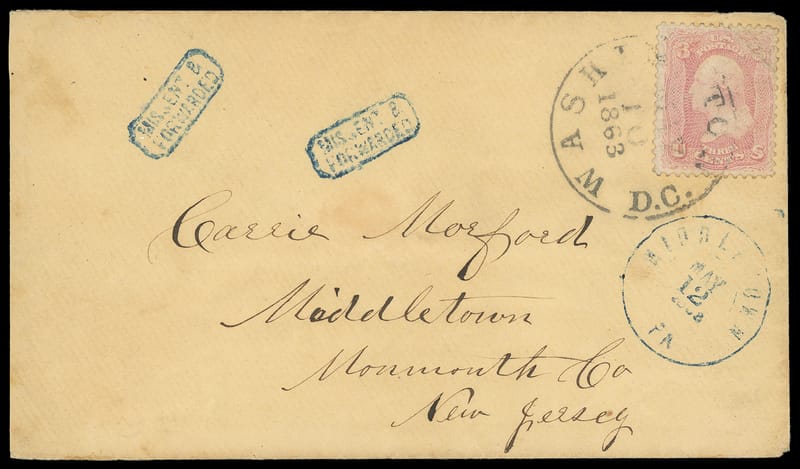 MISSENT &
FORWARDED
MISSENT &
FORWARDED
WASH
10
1863
D.C.
3 3
U.S.
POSTAGE
THREE
CENTS
U S
Carrie Morford
Middletown
Monmouth Co
New Jersey
MIDDLETOWN
MAY
12
PA